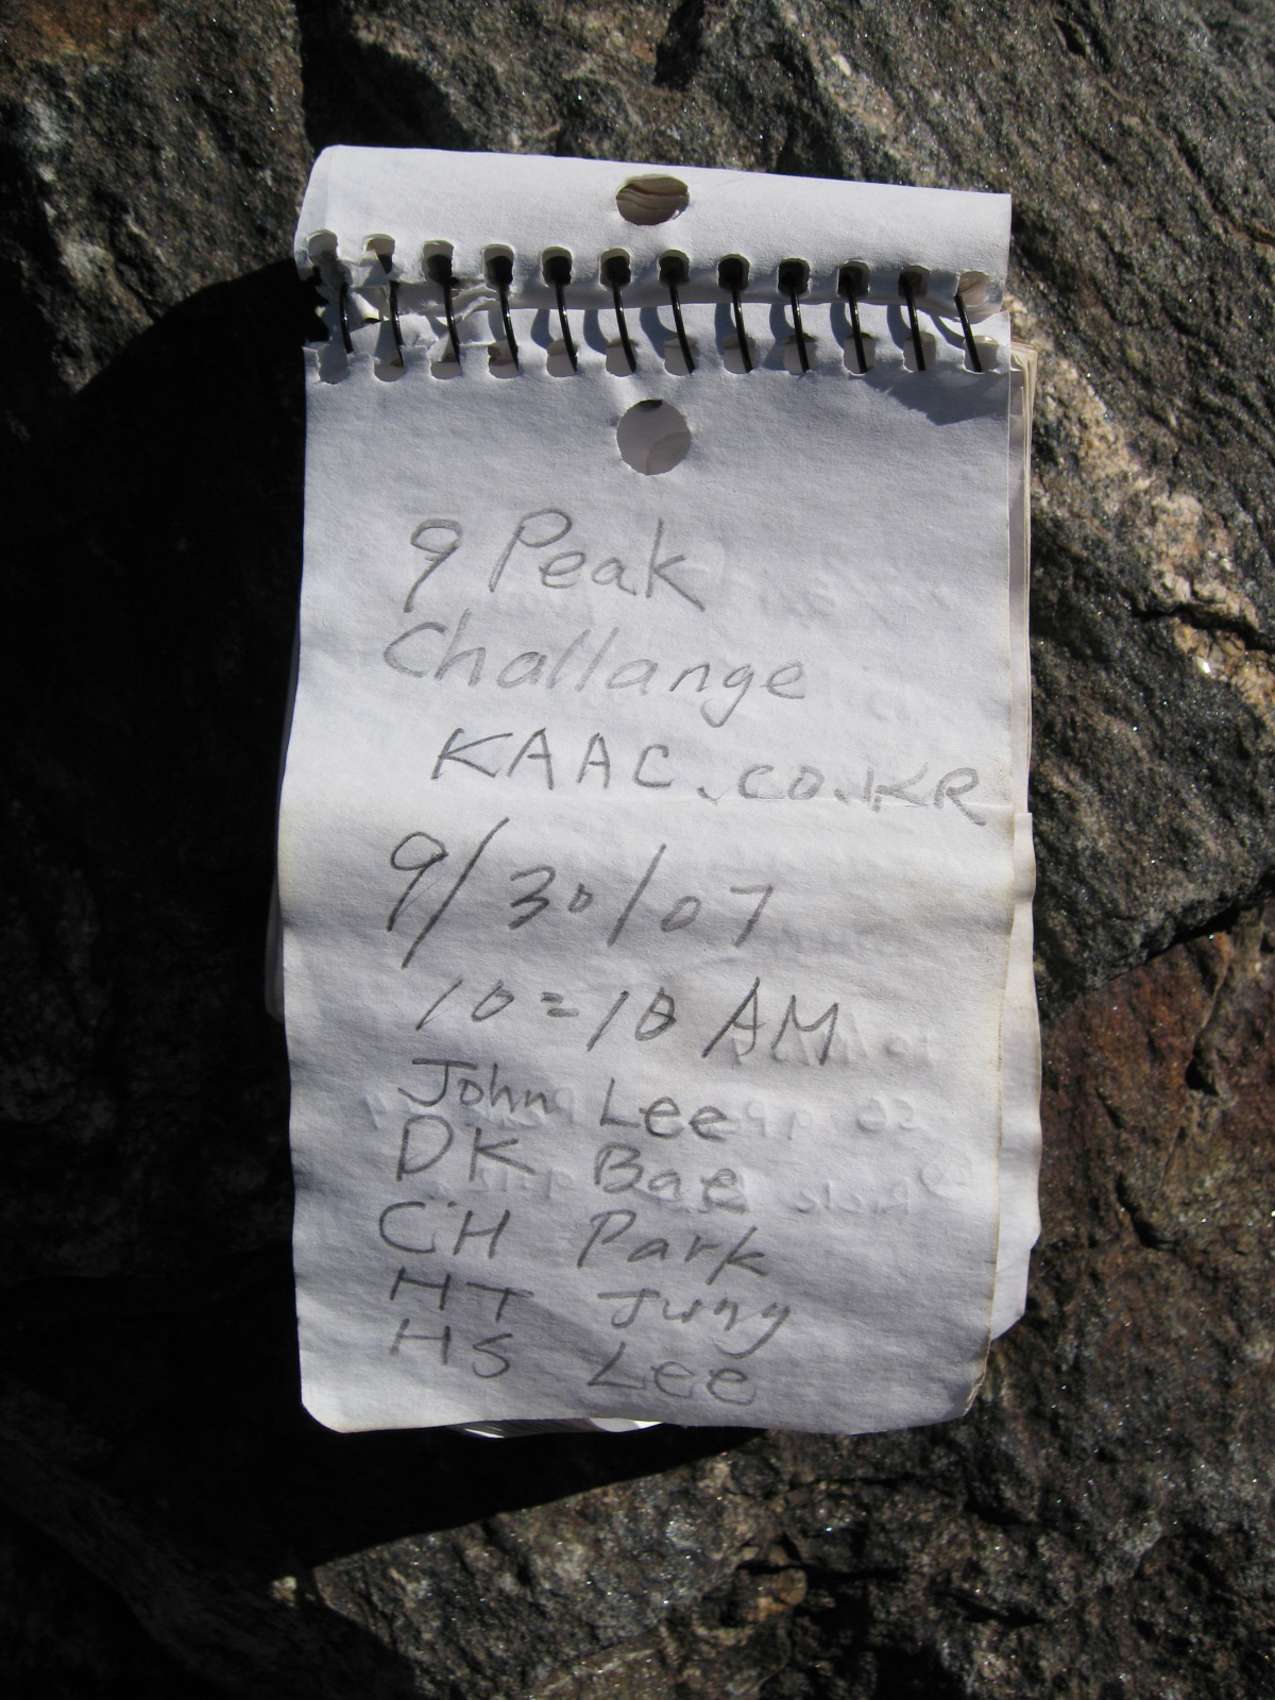 9 Peak
Challange
KAAC.CO.KR
9/30/07
10=10 AM
John Lee
DK Bae
CH Park
HT Jung
HS Lee